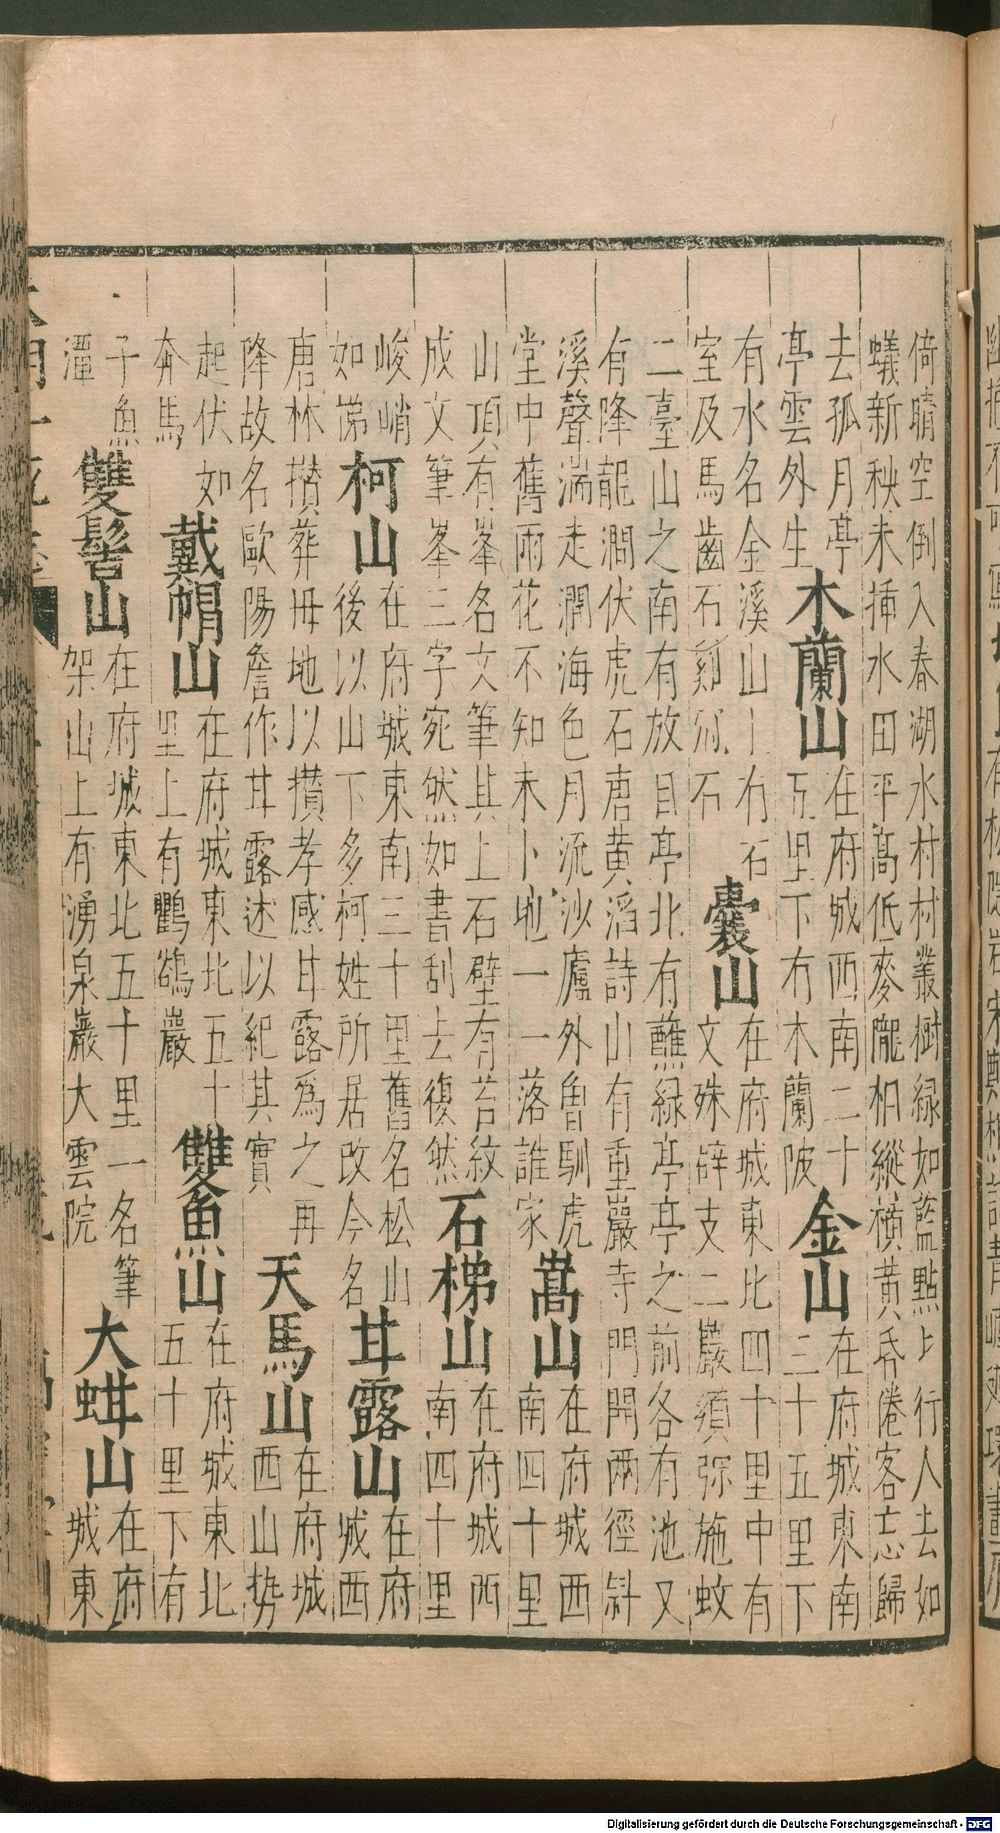 倚晴空倒入春湖水村村叢樹緑如藍點上行人去如
蟻新秧未揷水田平髙低麥隴相縱橫黄昏倦客忘歸
去孤月亭
亭雲外生
木蘭山
在府城西南二十
五里下有木蘭陂
金山
在府城東南
三十五里下
有水名金溪山上有石
室及馬齒石
石
囊山
在府城東北四十里中有
文殊辟支二巖須弥施蚊
二臺山之南有放目亭北有蘸緑亭亭之前各有池又
有降龍澗伏虎石唐黄滔詩山有重巖寺門開兩徑斜
溪聲湍走澗海色月流沙廬外魯馴虎
堂中舊雨花不知未卜地一一落誰家
嵩山
在府城西
南四十里
山頂有峯名文筆其上石壁有苔紋
成文筆峯三字宛然如書刮去復然
石梯山
在府城西
南四十里
峻峭
如梯
柯山
在府城東南三十里舊名松山
後以山下多柯姓所居改今名
甘露山
在府
城西
唐林攅葬母地以攅孝感甘露爲之再
降故名歐陽詹作甘露述以紀其實
天馬山
在府城
西山勢
起伏如
奔馬
戴帽山
在府城東北五十
里上有鸜鵒巖
雙魚山
在府城東北
五十里下有
子魚
潭
雙髻山
在府城東北五十里一名筆
架山上有湧泉巖大雲院
大蚶山
在府
城東
Digitalisierung gefördert durch die Deutsche Forschungsgemeinschaft - DFG